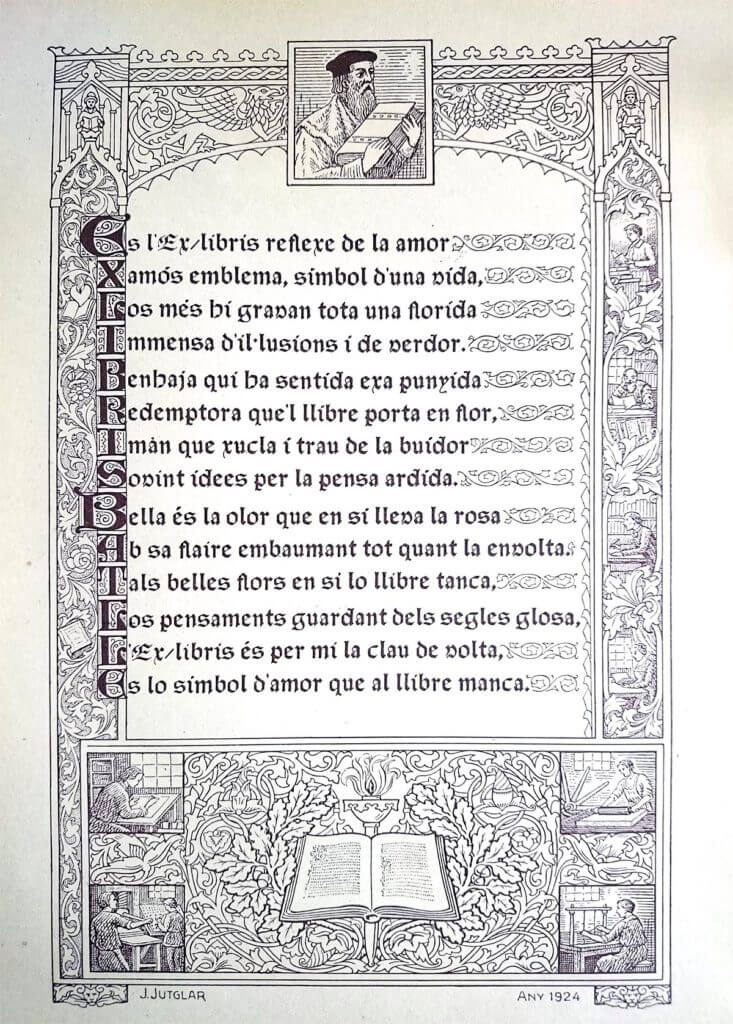 Es l'Ex-libris reflexe de la amor
Xamós emblema, simbol d'una vida,
Los més hi gravan tota una florida
Immensa d'il·lusions i de verdor.
Benhaja qui ha sentida exa punyida
Redemptora que'l llibre porta en flor,
Imàn que xucla i trau de la buidor
Sovint idees per la pensa ardida.
Bella és la olor que en si lleva la rosa
Ab sa flaire embaumant tot quant la envolta.
Tals belles flors en si lo llibre tanca,
Los pensaments guardant dels segles glosa,
L'Ex-libris és per mi la clau de volta,
Es lo simbol d'amor que al llibre manca.
J. JUTGLAR
ANY 1924